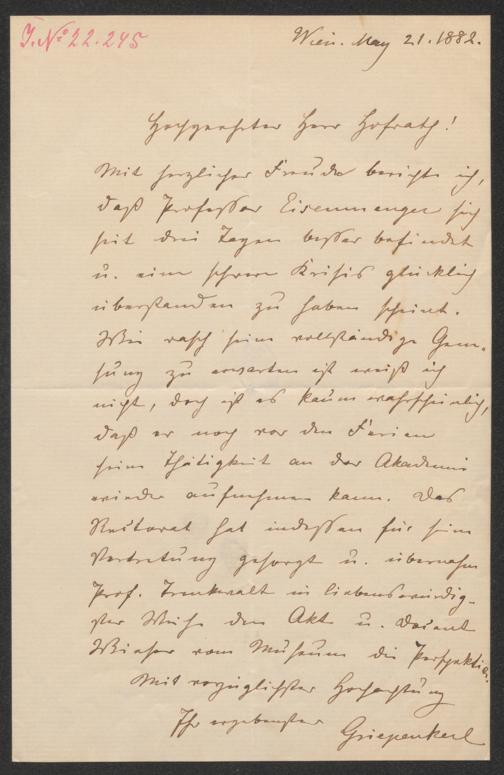 J. No 22.245
Wien. May 21. 1882.
Hochgeehrter Herr Hofrath!
Mit herzlicher Freude berichte ich,
daß Professor Eisenmenger sich
seit drei Tagen besser befindet
u. eine schwere Krisis glücklich
überstanden zu haben scheint.
Wie rasch seine vollständige Gene-
sung zu erwarten ist weiß ich
nicht, doch ist es kaum wahrscheinlich,
daß er noch vor den Ferien
seine Thätigkeit an der Akademie
wieder aufnehmen kann. Das
Rectorat hat indessen für seine
Vertretung gesorgt u. übernahm
Prof. Trenkwalt in liebenswürdig-
ster Weise den Akt u. Docent
Wieser vom Museum die Perspektive.
Mit vorzüglichster Hochachtung
Ihr ergebenster
Griepenkerl